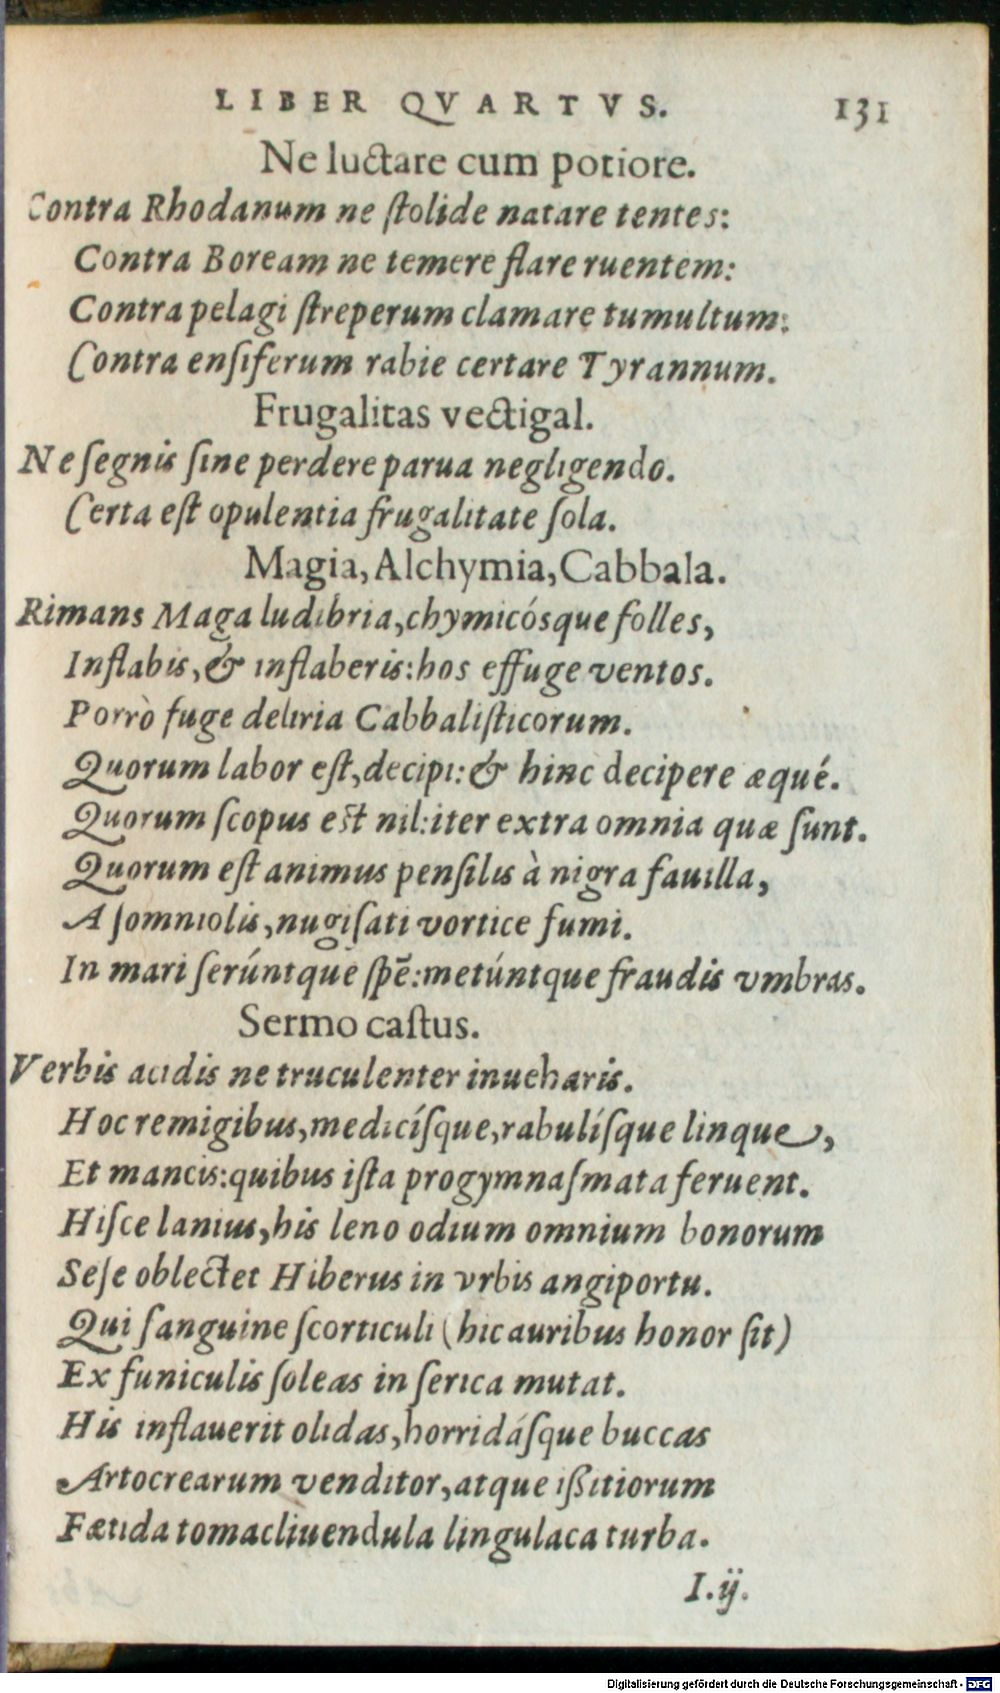 LIBER QVARTVS. 131
Ne luctare cum potiore.
Contra Rhodanum ne ſtolide natare tentes:
Contra Boream ne temere flare ruentem:
Contra pelagi ſtreperum clamare tumultum:
Contra enſiferum rabie certare Tyrannum.
Frugalitas vectigal.
Ne ſegnis ſine perdere parua negligendo.
Certa eſt opulentia frugalitate ſola.
Magia, Alchymia, Cabbala.
Rimans Maga ludibria, chymicósque folles,
Inflabis, & inflaberis: hos effuge ventos.
Porrò fuge deliria Cabbaliſticorum.
Quorum labor eſt, decipi: & hinc decipere æqué.
Quorum ſcopus eſt nil: iter extra omnia quæ ſunt.
Quorum eſt animus penſilis à nigra fauilla,
A ſomniolis, nugiſati vortice fumi.
In mari ſerúntque ſpē: metúntque fraudis vmbras.
Sermo caſtus.
Verbis acidis ne truculenter inueharis.
Hoc remigibus, medicíſque, rabulíſque linque,
Et mancis: quibus iſta progymnaſmata feruent.
Hiſce lanius, his leno odium omnium bonorum
Seſe oblectet Hiberus in vrbis angiportu.
Qui ſanguine ſcorticuli (hic auribus honor ſit)
Ex funiculis ſoleas in ſerica mutat.
His inflauerit olidas, horridáſque buccas
Artocrearum venditor, atque iſsitiorum
Fætida tomacliuendula lingulaca turba.
I.ij.
Digitalisierung gefördert durch die Deutsche Forschungsgemeinschaft - DFG